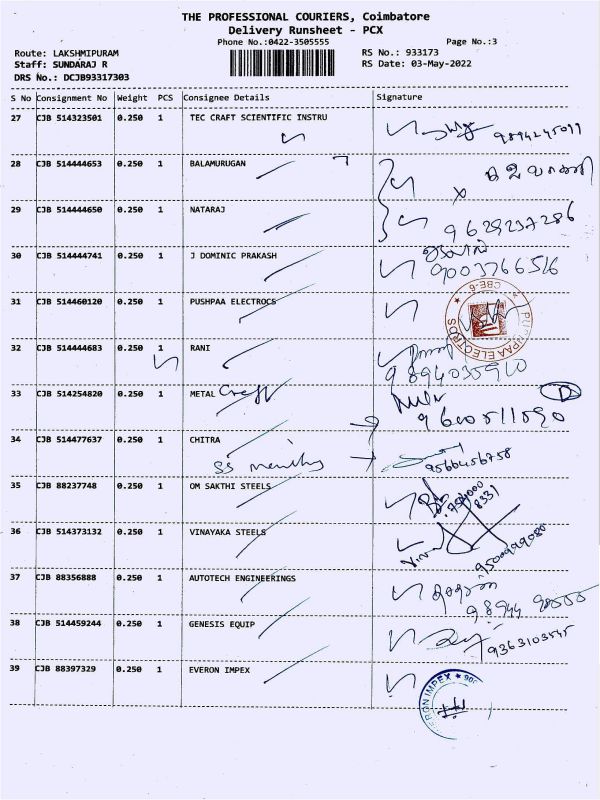 THE PROFESSIONAL COURIERS, Coimbatore
Delivery Runsheet - PCX
Phone No.:0422-3505555
Page No.:3
Route: LAKSHMIPURAM
RS No.: 933173
Staff: SUNDARAJ R
RS Date: 03-May-2022
DRS No.: DCJB93317303
S No Consignment No Weight PCS Consignee Details Signature
27 CJB 514323501 0.250 1 TEC CRAFT SCIENTIFIC INSTRU
9894245011
28 CJB 514444653 0.250 1 BALAMURUGAN
29 CJB 514444650 0.250 1 NATARAJ
9629237286
30 CJB 514444741 0.250 1 J DOMINIC PRAKASH
9003766516
31 CJB 514460120 0.250 1 PUSHPAA ELECTROCS
PUSHPAA ELECTRODS CBE-6
32 CJB 514444683 0.250 1 RANI
9894035910
33 CJB 514254820 0.250 1 METAL Craft
D
9600511590
34 CJB 514477637 0.250 1 CHITRA
9566456758
35 CJB 88237748 0.250 1 OM SAKTHI STEELS
36 CJB 514373132 0.250 1 VINAYAKA STEELS
9500999080
37 CJB 88356888 0.250 1 AUTOTECH ENGINEERINGS
38 CJB 514459244 0.250 1 GENESIS EQUIP
9363103545
39 CJB 88397329 0.250 1 EVERON IMPEX